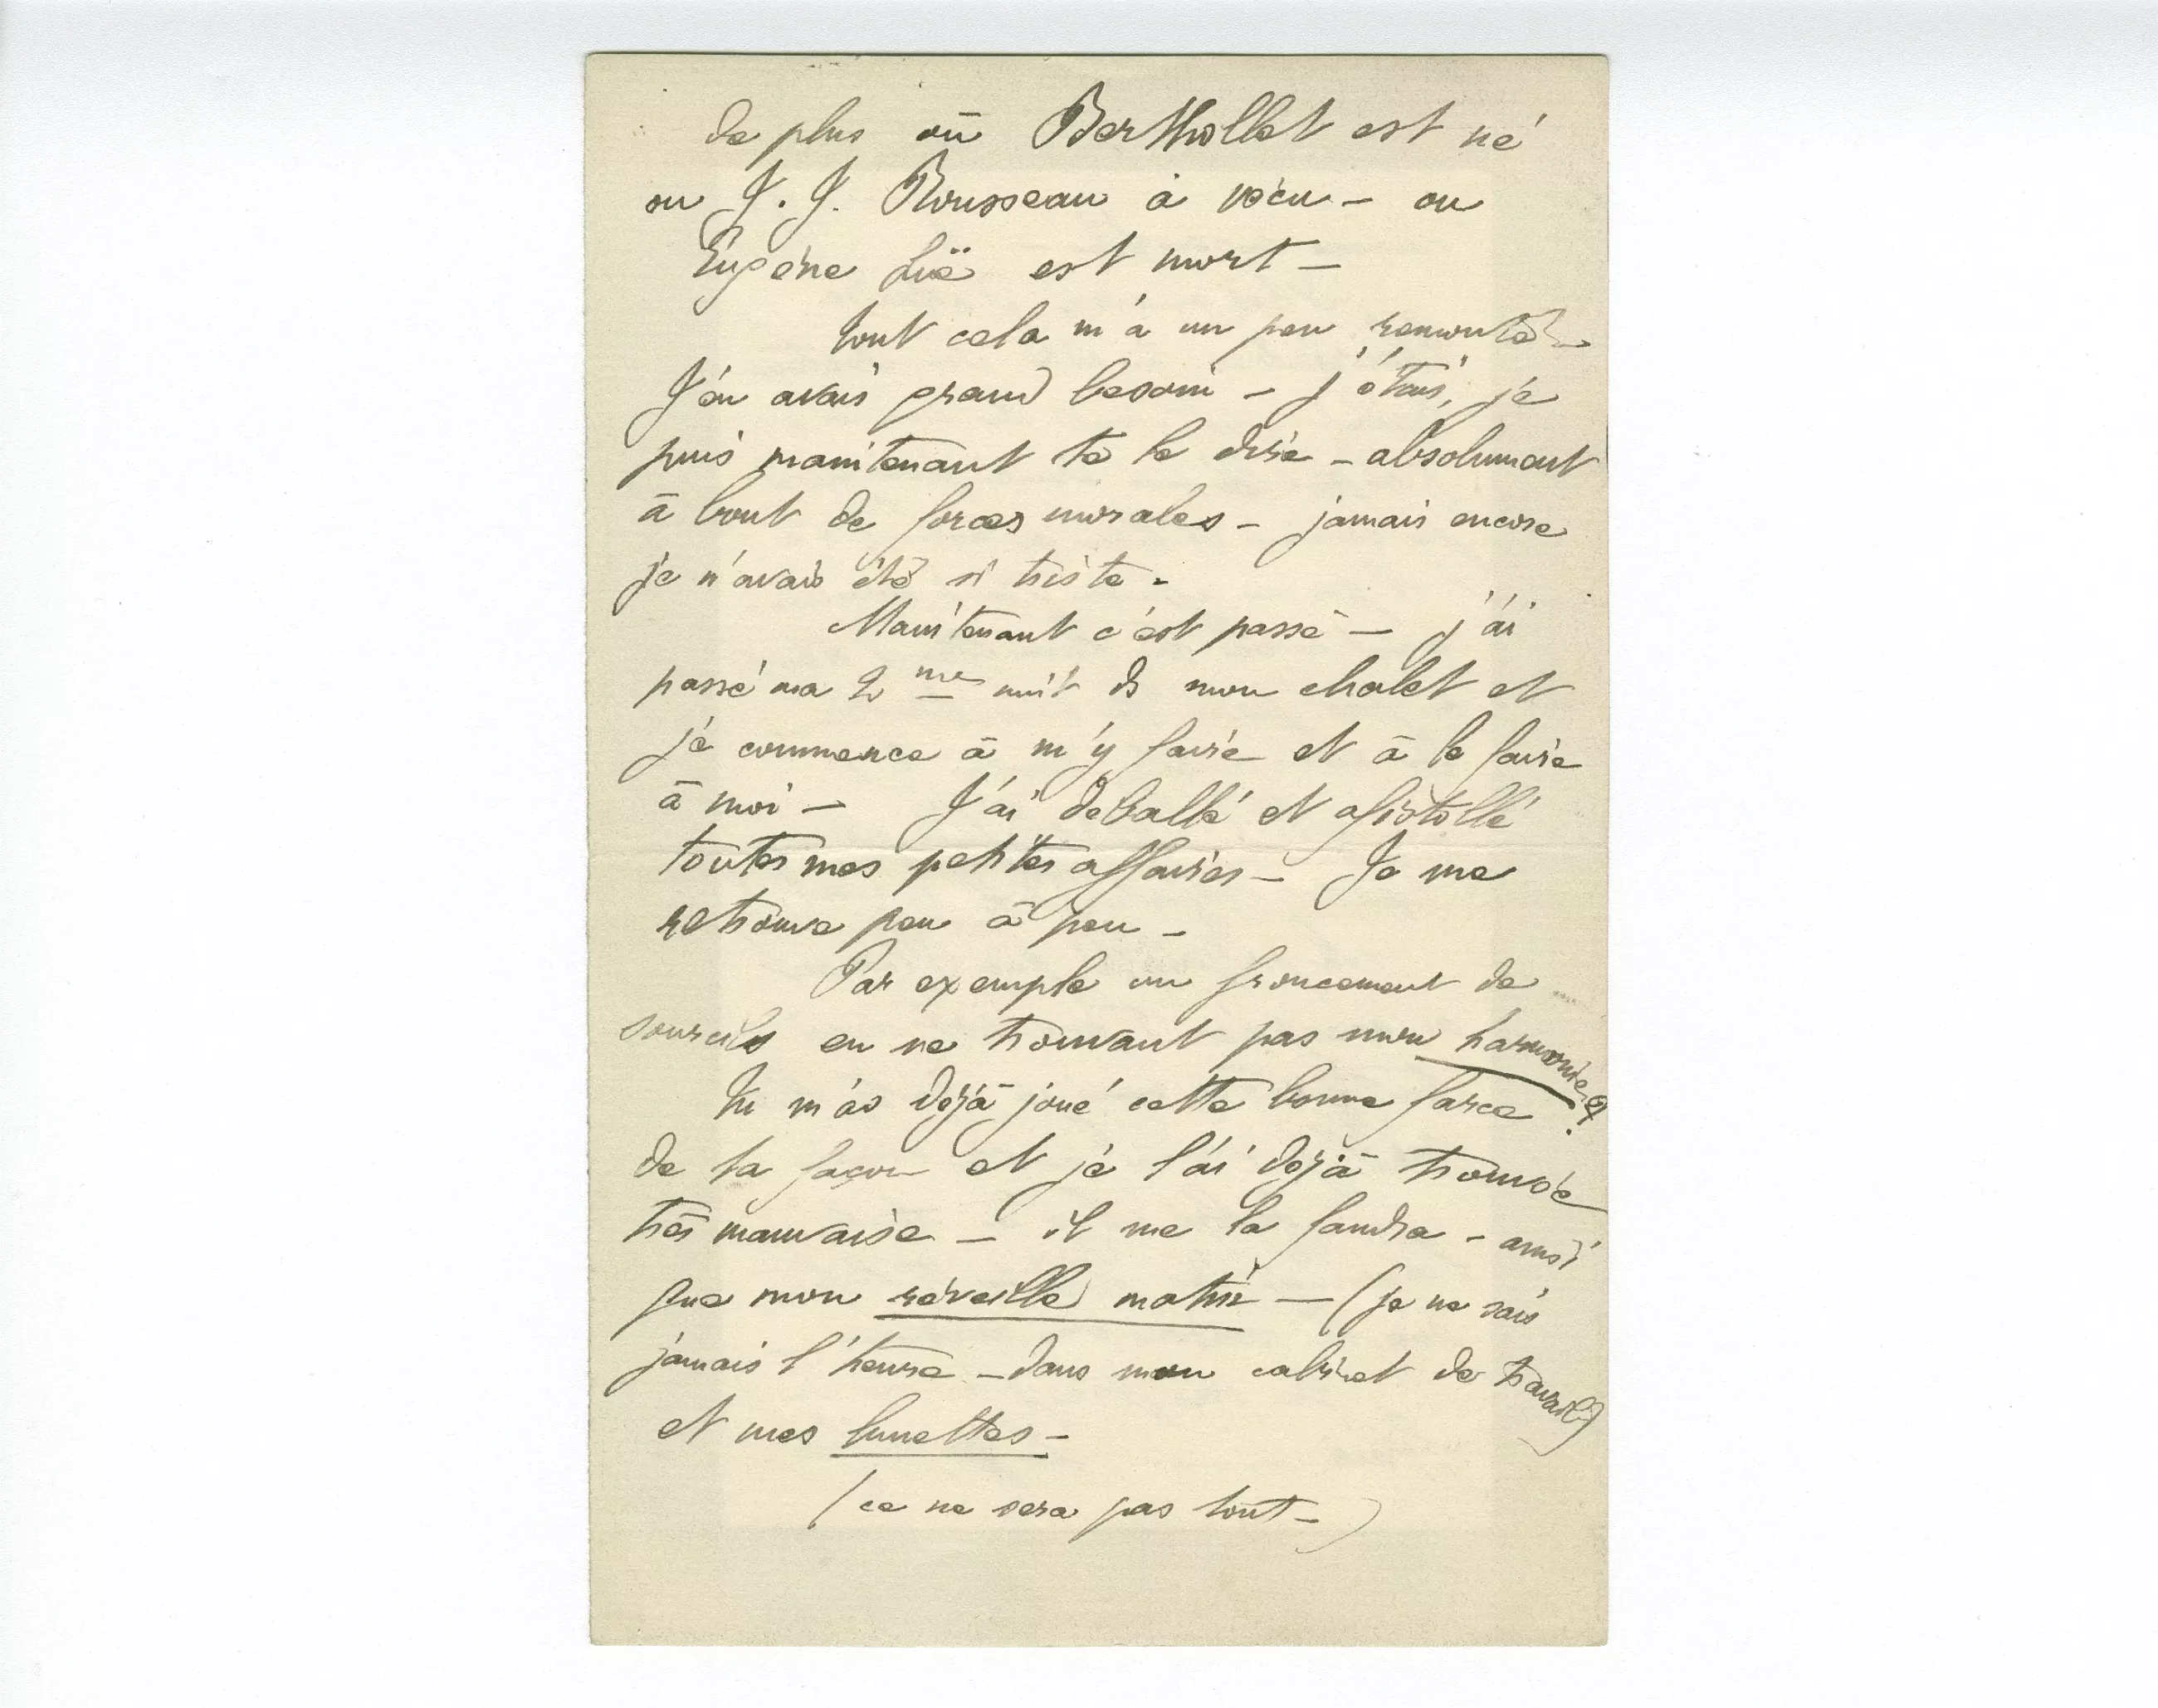 de plus où Berthollet est né
ou J. J. Rousseau à vécu – ou
Eugène Süe est mort –
tout cela m'a un peu remonté –
J'en avais grand besoin – j'étais, je
puis maintenant te le dire – absolument
à bout de forces morales – jamais encore
je n'avais été si triste –
Maintenant c'est passé – j'ai
passé ma 2me nuit ds mon chalet et
je commence à m'y faire et à le faire
à moi – J'ai deballé et afistollé
toutes mes petites affaires – Je me
retrouve peu à peu –
Par exemple un froncement de
sourcils en ne trouvant pas mon harmonie
Tu m'as déjà joué cette bonne farce
de ta façon et je l'ai déjà trouvée
très mauvaise – il me la faudra – ainsi
que mon réveille matin – (je ne sais
jamais l'heure – dans mon cabinet de travail)
et mes lunettes –
(ce ne sera pas tout –)